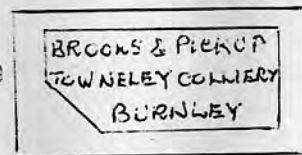 BROOKS & PICKUP
TOWNELEY COLLIERY
BURNLEY